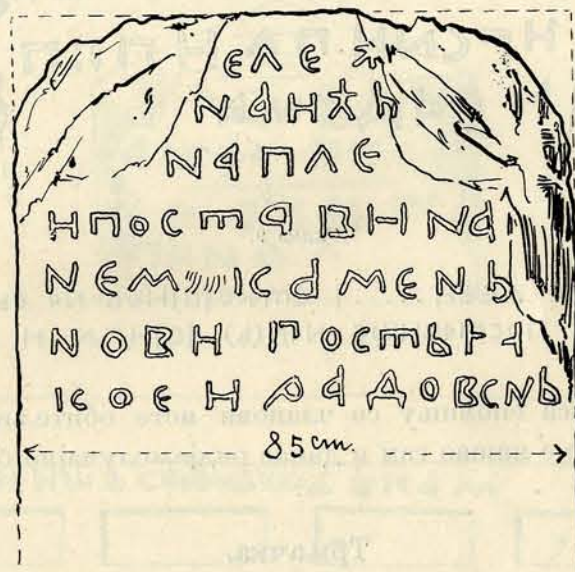 ЄЛЄ
NАНЖЬ
NАПЛЄ
НПОСТАВН NА
NЄМ КАМЄNЬ
NОВН ГОСТЬН
КОЄ Н РАДОВСNЬ
85 cm.